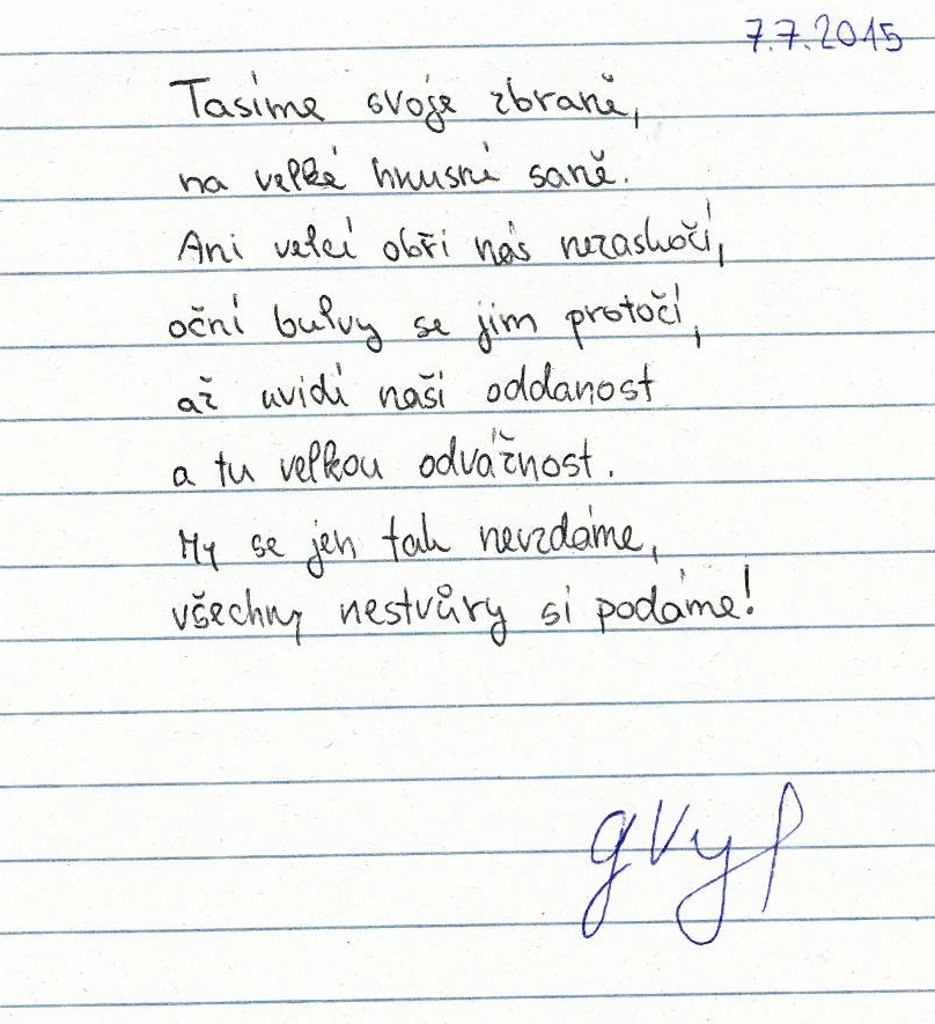 7.7.2015
Tasíme svoje zbraně,
na velké hnusné saně.
Ani velcí obři nás nezaskočí,
oční bulvy se jim protočí,
až uvidí naši oddanost
a tu velkou odvážnost.
My se jen tak nevzdáme,
všechny nestvůry si podáme!